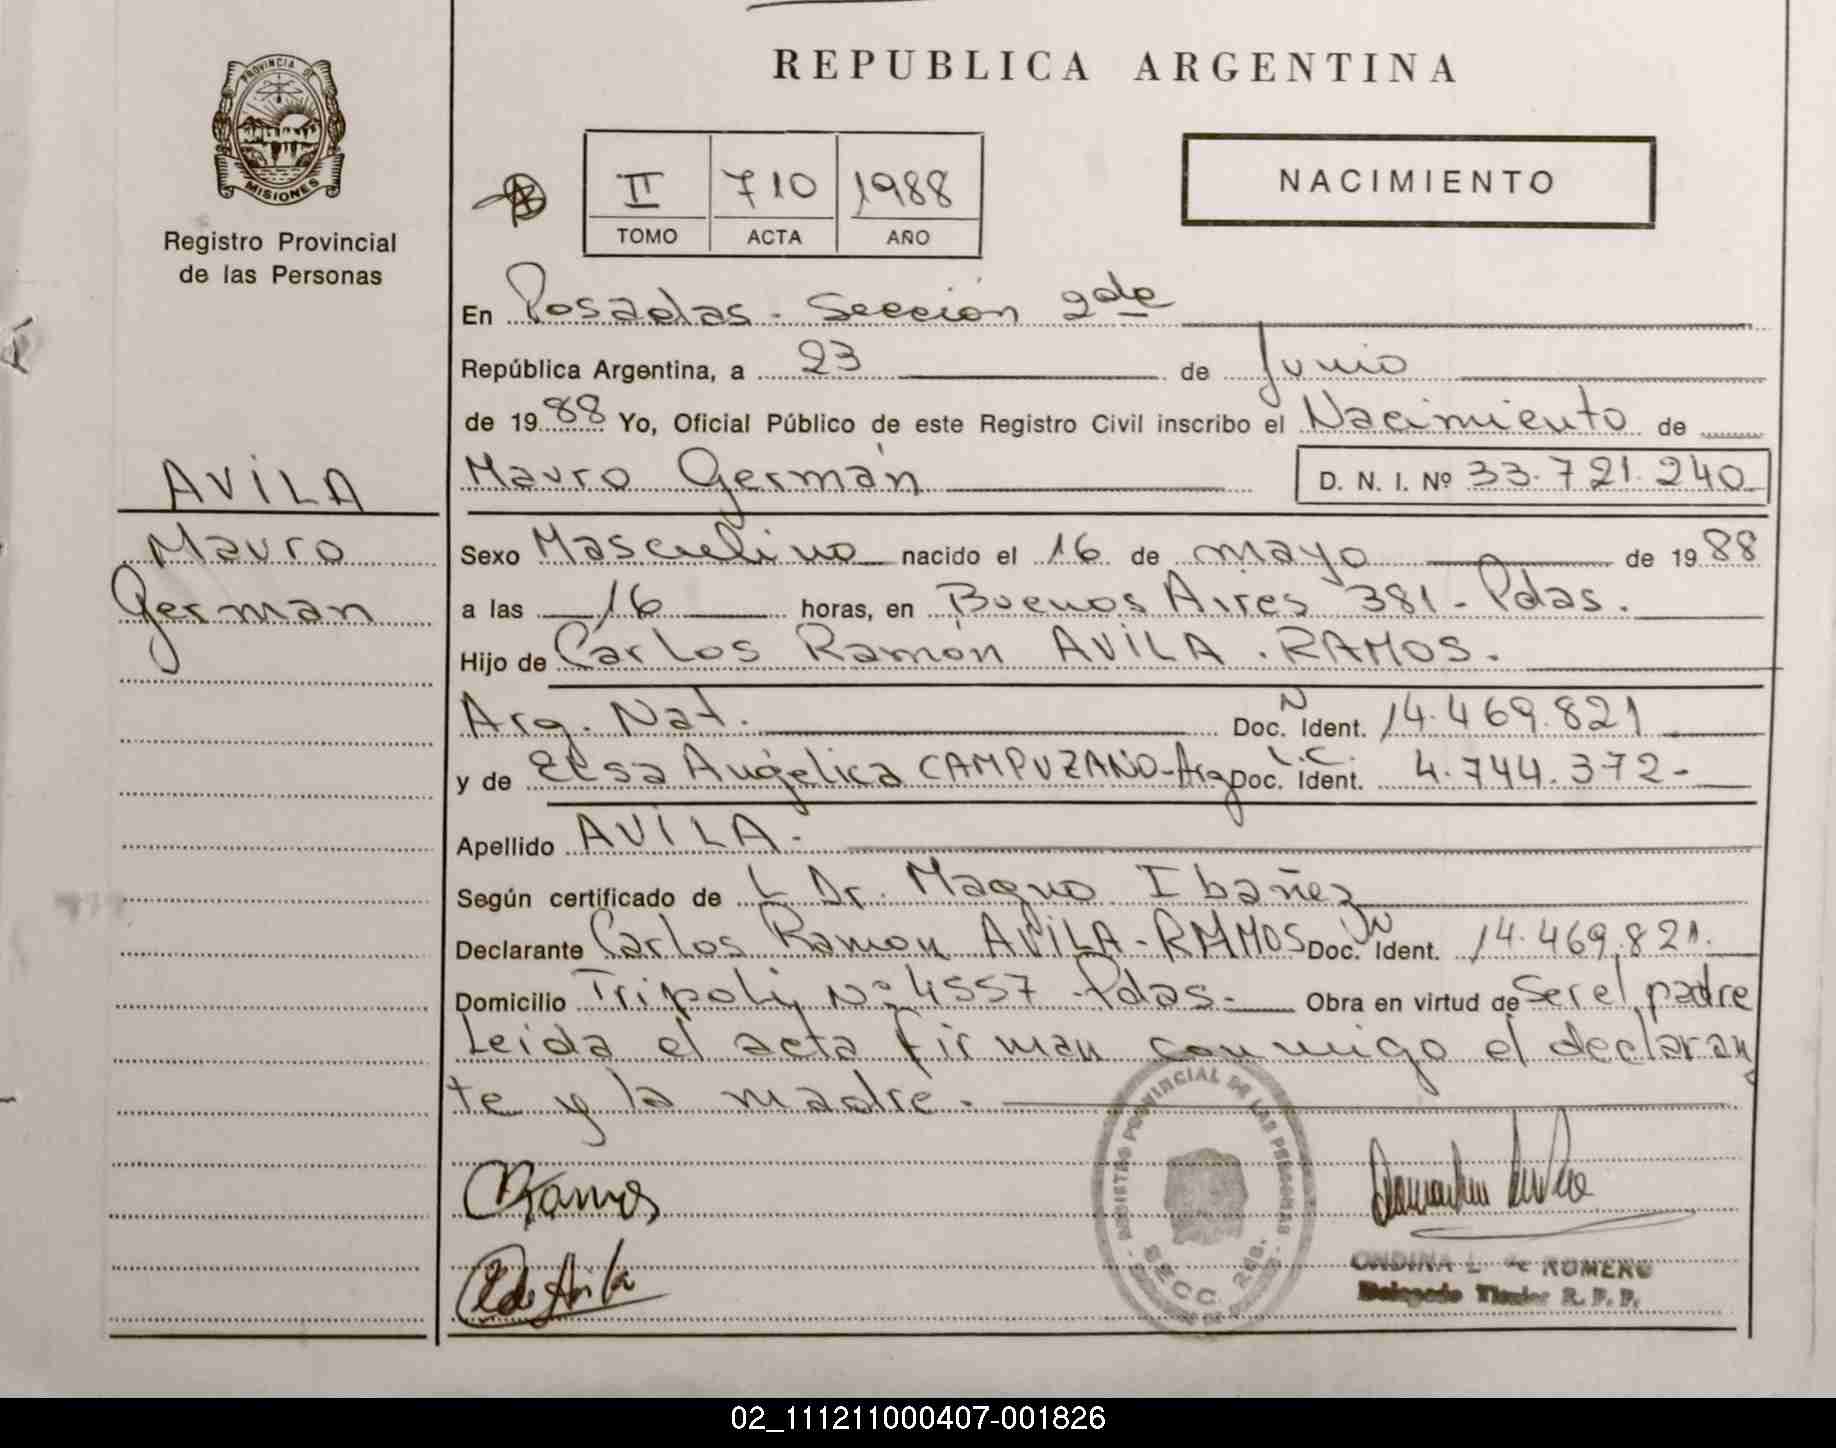 REPUBLICA ARGENTINA
PROVINCIA DE
MISIONES
Registro Provincial
de las Personas
II 710 1988
TOMO ACTA AÑO
NACIMIENTO
En Posadas - Sección 2da
República Argentina, a 23 de Junio
de 1988 Yo, Oficial Público de este Registro Civil inscribo el Nacimiento de
AVILA
Mauro Germán D. N. I. Nº 33.721.240
Mauro
German
Sexo Masculino nacido el 16 de mayo de 1988
a las 16 horas, en Buenos Aires 381 - Pdas.
Hijo de Carlos Ramón AVILA - RAMOS.
Arg. Nat. Doc. N Ident. 14.469.821
y de Elsa Angélica CAMPUZANO - Arg Doc. L.C. Ident. 4.744.372-
Apellido AVILA.-
Según certificado de Dr. Magno Ibañez
Declarante Carlos Ramon AVILA - RAMOS Doc. Ident. 14.469.821.
Domicilio Tripoli Nº 4557 - Pdas.- Obra en virtud de Ser el padre
Leida el acta firman conmigo el declaran
te y la madre.
REGISTRO PROVINCIAL DE LAS PERSONAS
SECC. 2da.
CRamos
E de Avila
ONDINA L. de ROMERO
Delegado Titular R. P. P.
02_111211000407-001826